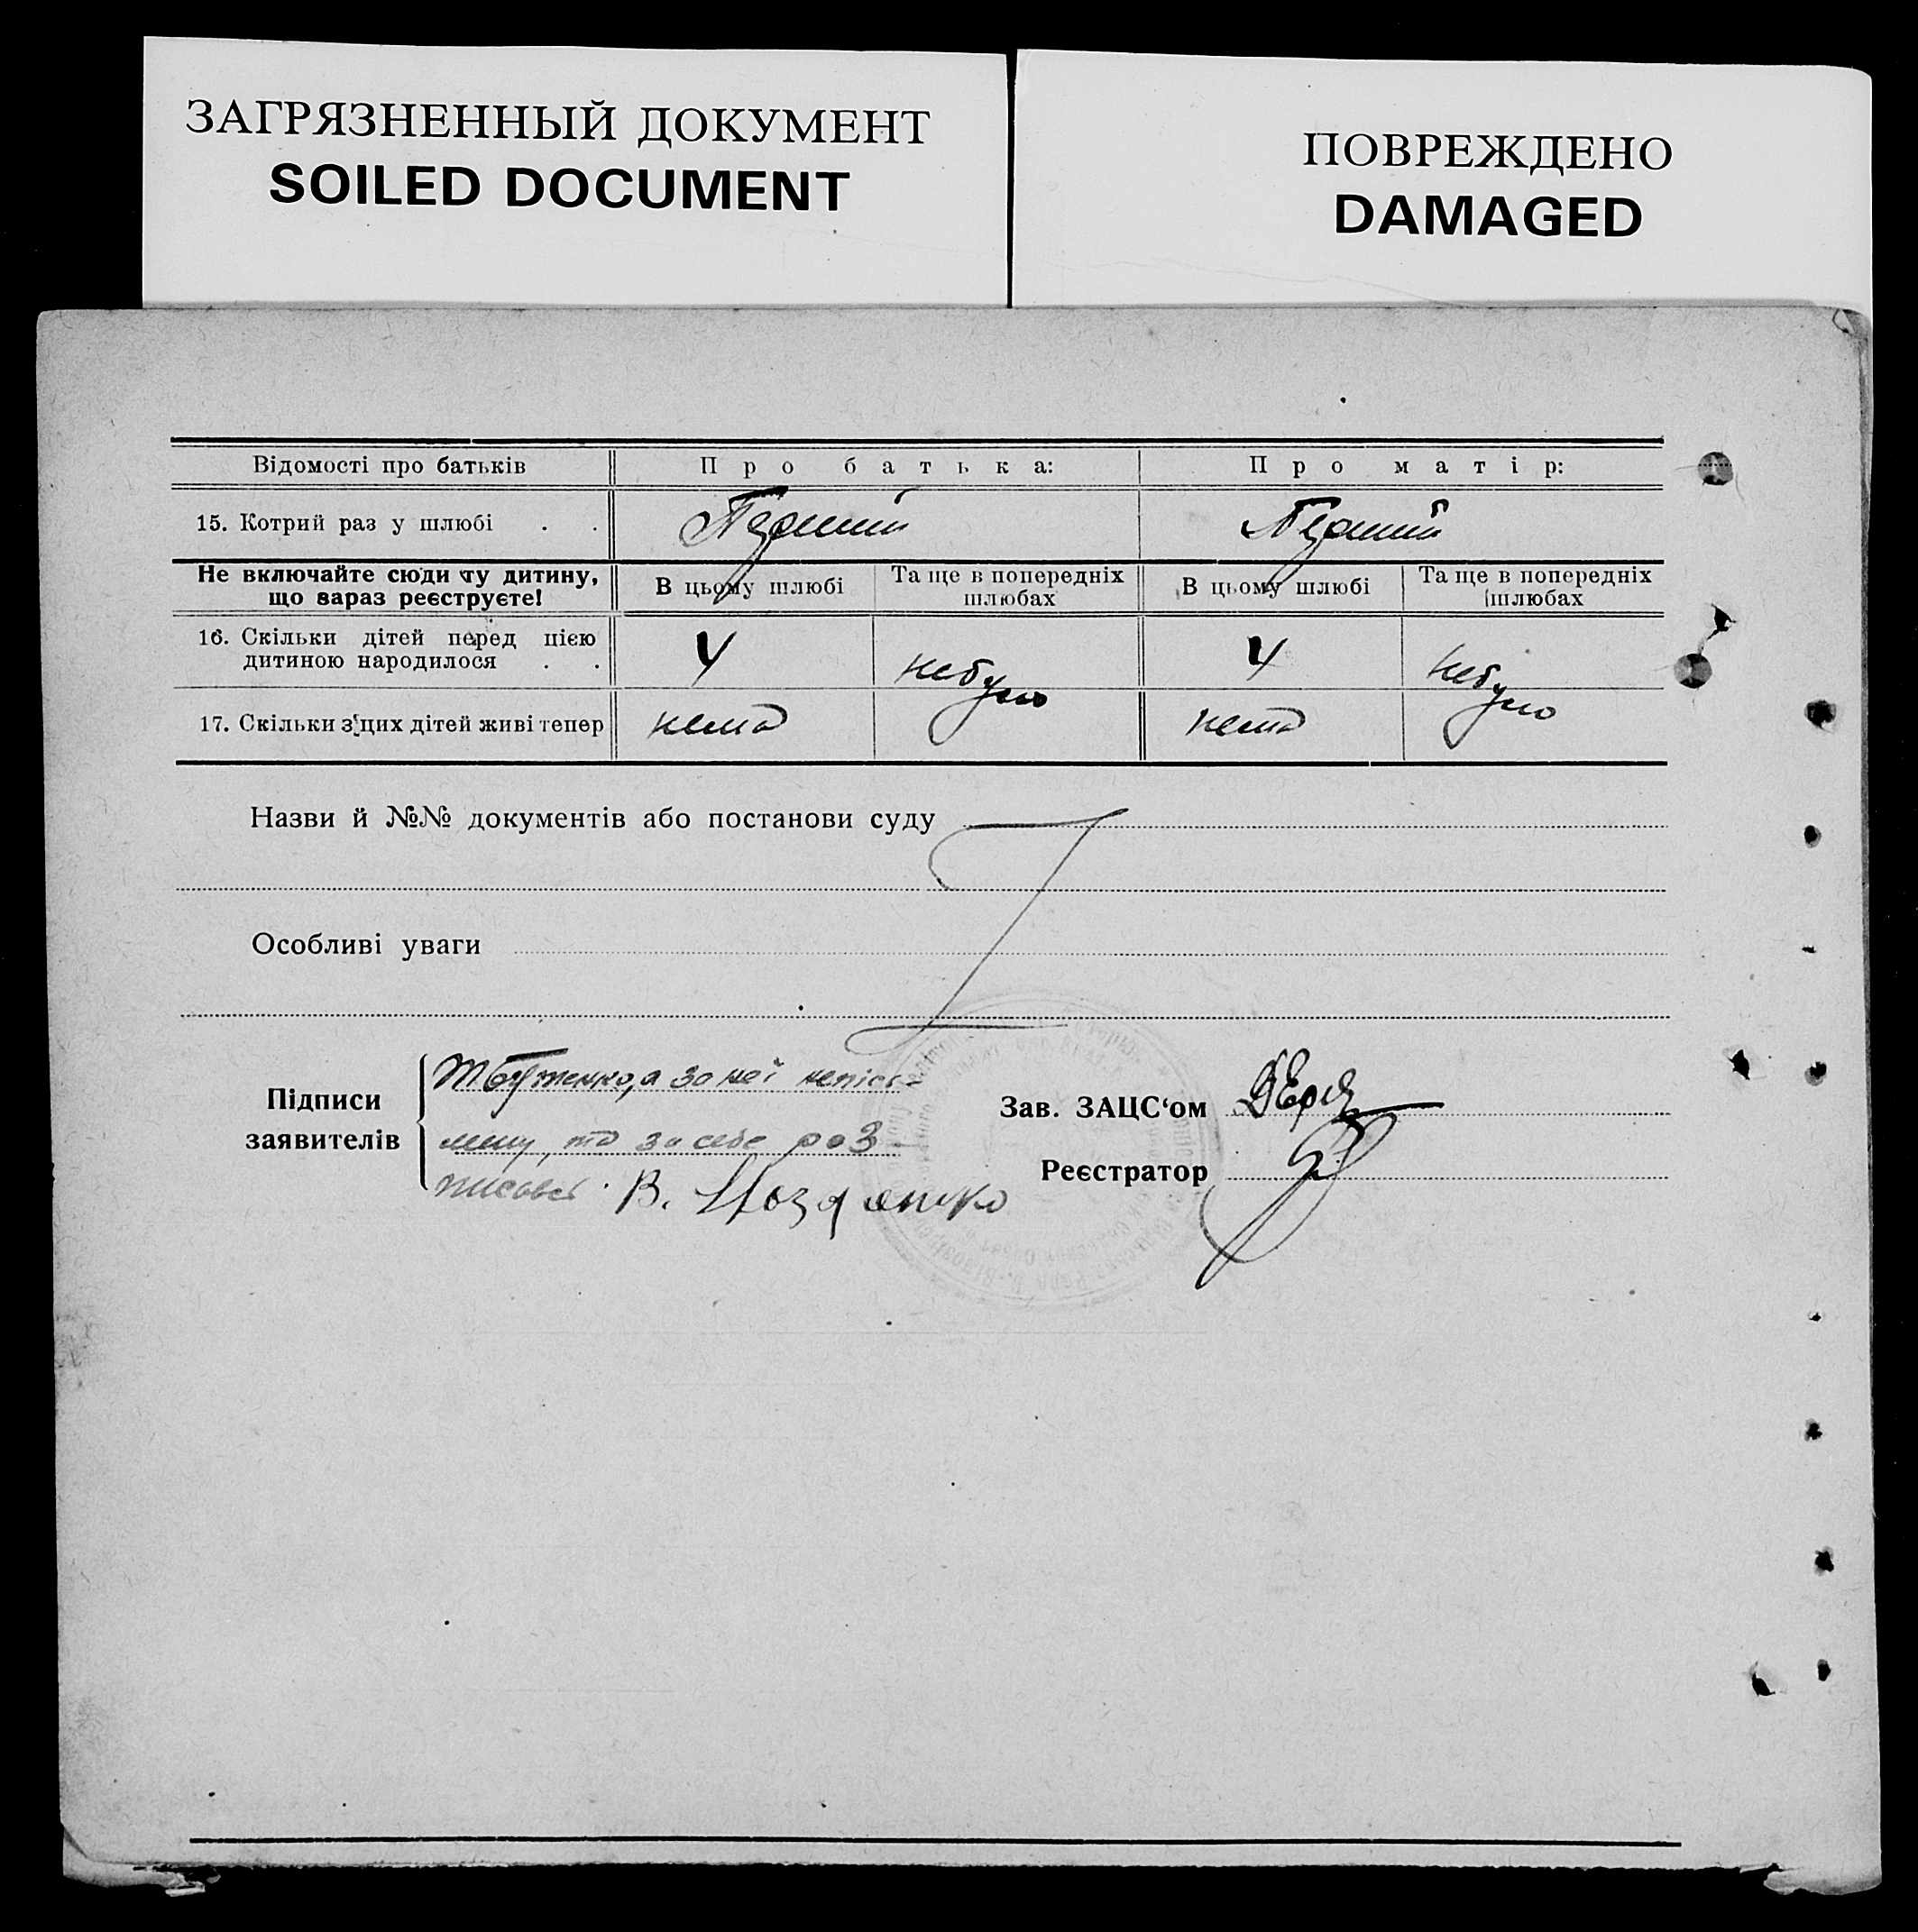 ЗАГРЯЗНЕННЫЙ ДОКУМЕНТ
SOILED DOCUMENT
ПОВРЕЖДЕНО
DAMAGED
Відомості про батьків Про батька: Про матір:
15. Котрий раз у шлюбі . . Перший Перший
Не включайте сюди ту дитину, що зараз реєструєте! В цьому шлюбі Та ще в попередніх шлюбах В цьому шлюбі Та ще в попередніх шлюбах
16. Скільки дітей перед цією
дитиною народилося . . 4 небуло 4 небуло
17. Скільки з цих дітей живі тепер нема нема
Назви й №№ документів або постанови суду
Особливі уваги
Підписи
заявителів
а за неї непись-
мену, та за себе роз-
писавсь. В.
Зав. ЗАЦС‘ом
Реєстратор